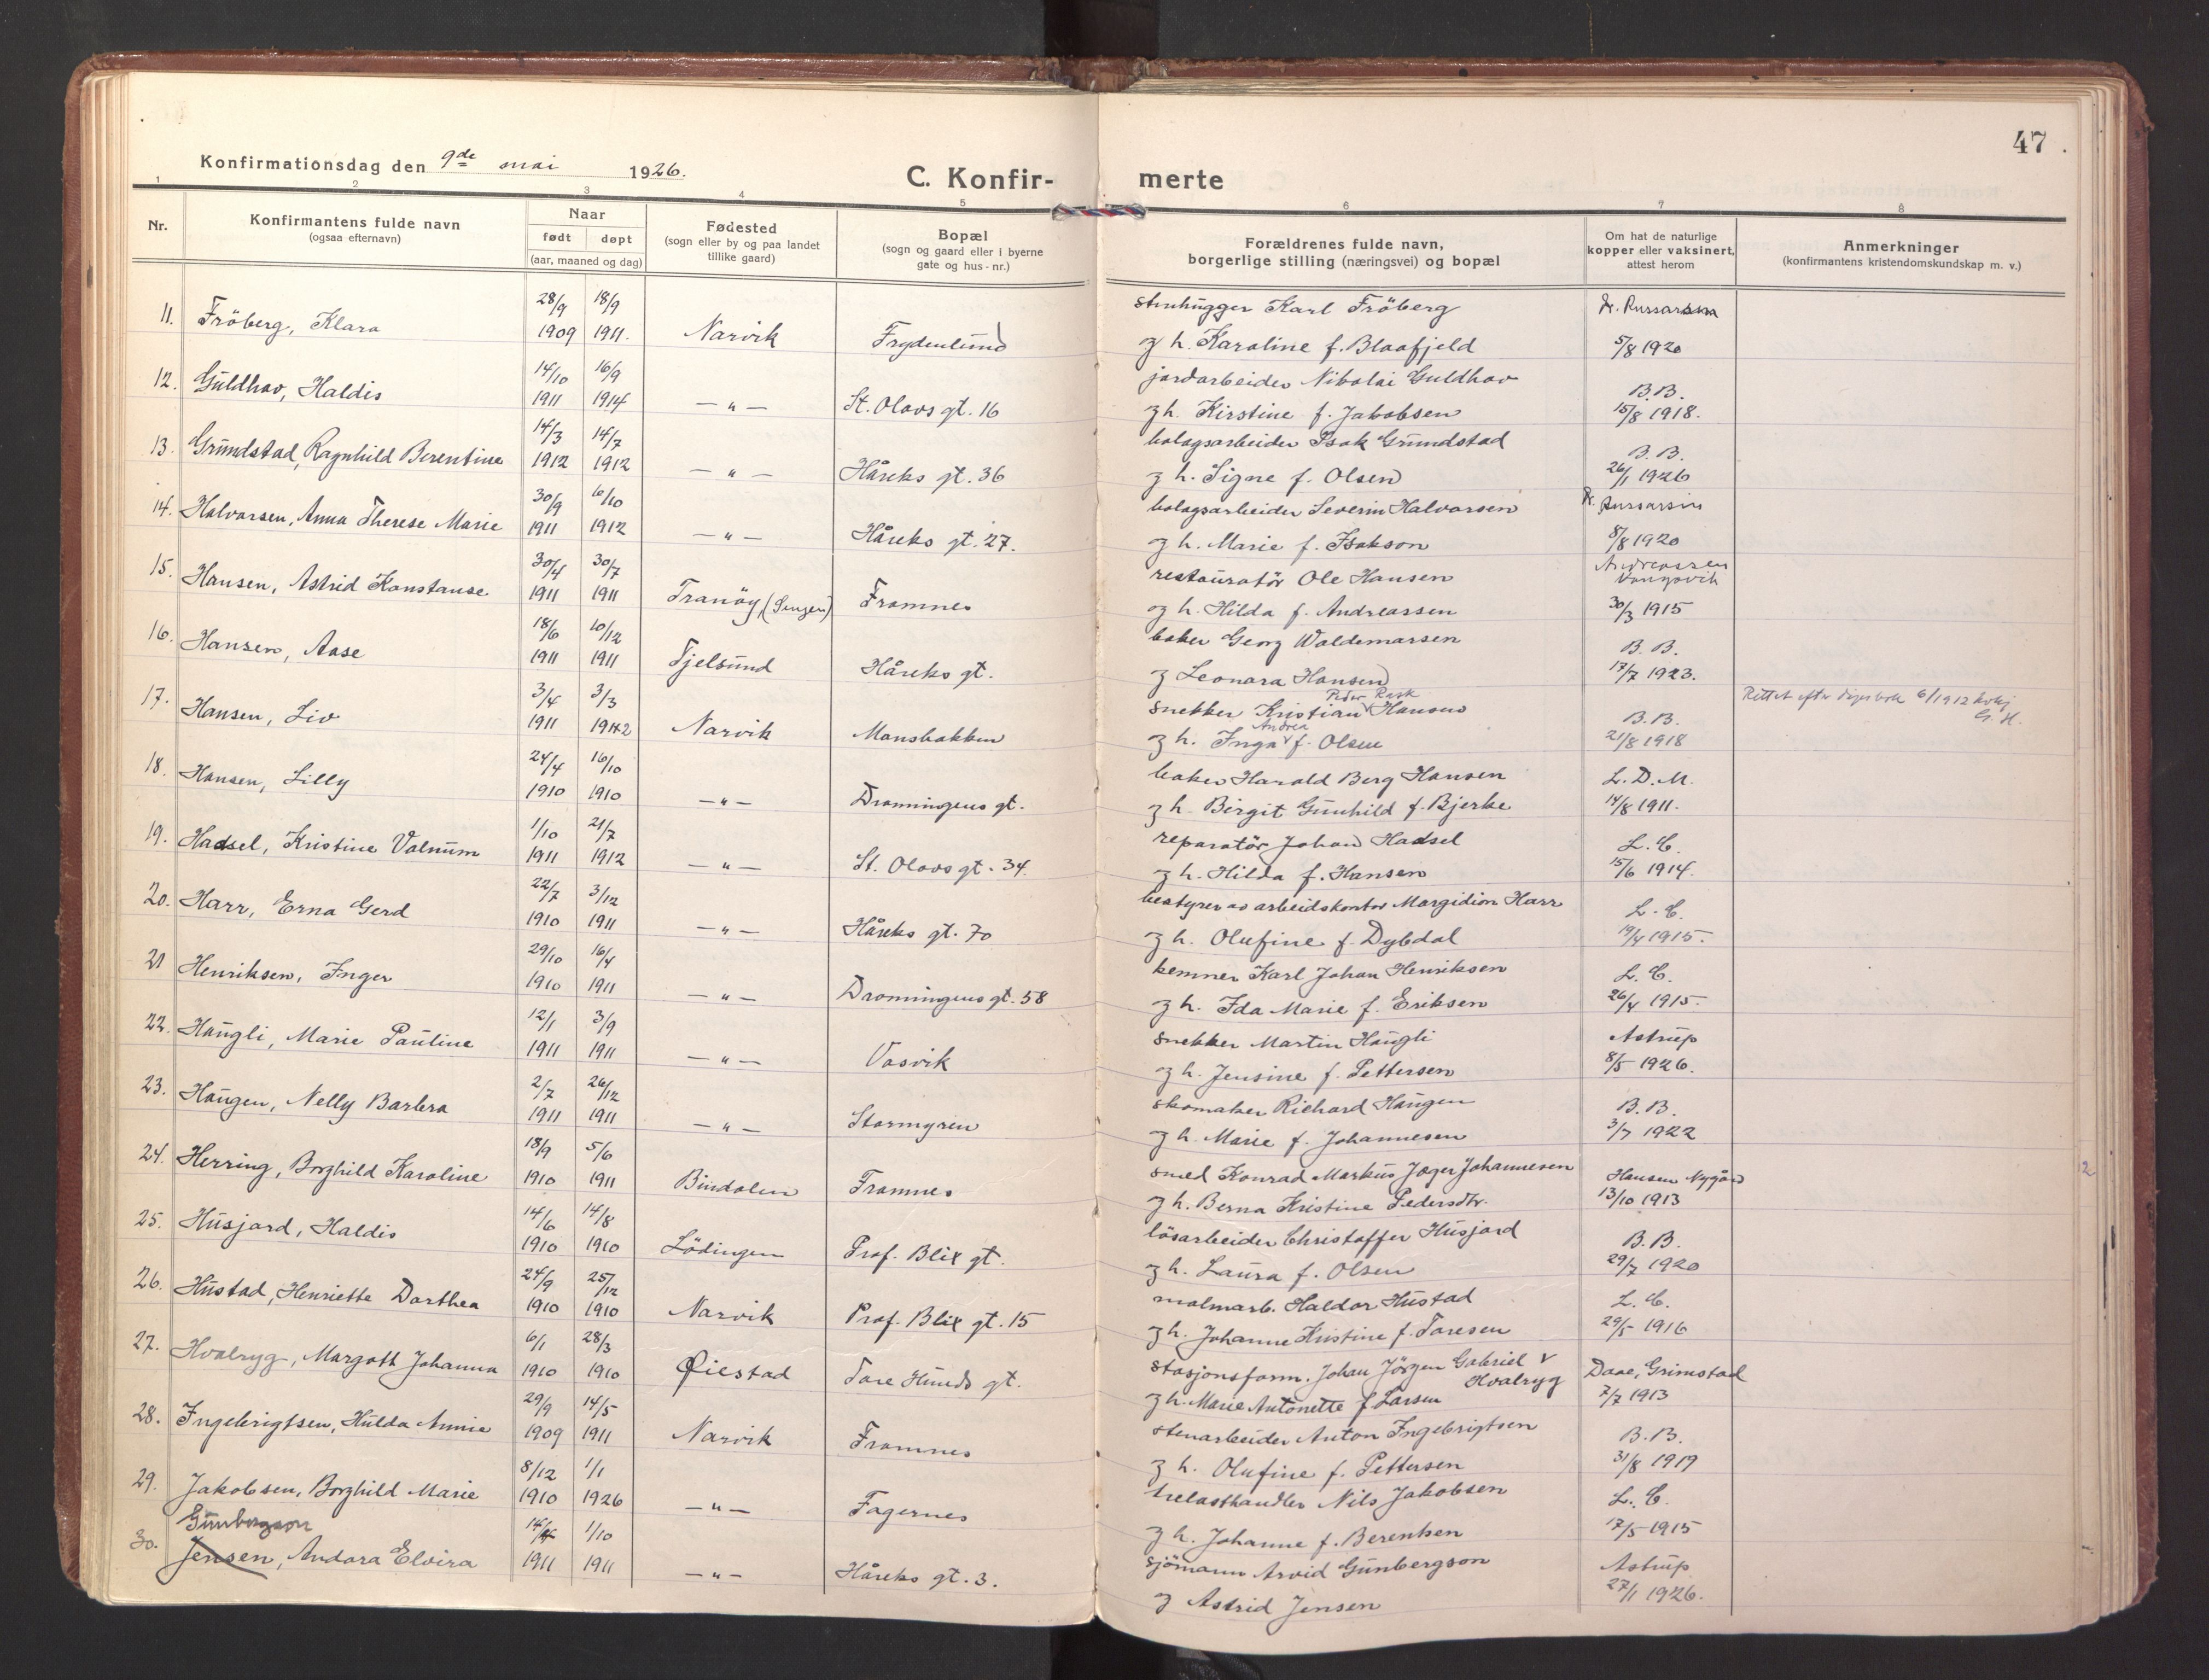 47.
Konfirmationsdag den 9de mai 1926.
C. Konfir- merte
1 2 3 4 5 6 7 8
Nr.
Konfirmantens fulde navn
(ogsaa efternavn)
Naar
født døpt
(aar, maaned og dag)
Fødested
(sogn eller by og paa landet
tillike gaard)
Bopæl
(sogn og gaard eller i byerne
gate og hus-nr.)
Forældrenes fulde navn,
borgerlige stilling (næringsvei) og bopæl
Om hat de naturlige
kopper eller vaksinert,
attest herom
Anmerkninger
(konfirmantens kristendomskundskap m. v.)
28/9 18/9 stenhugger Karl Fröberg
11. Fröberg, Klara 1909 1911. Narvik Frydenlund g h. Karoline f. Blaafjeld 5/8 1920
14/10 16/9 jordarbeider Nikolai Guldhav B.B.
12. Guldhav, Haldis 1911 1914 — " — St. Olavs gt. 16 g h. Kirstine f. Jakobsen 15/8 1918.
14/3 14/7 bolagsarbeider Isak Grundstad B.B.
13. Grundstad, Ragnhild Berentine 1912 1912 — " — Håreks gt. 36 g h. Signe f. Olsen 26/1 1926
30/9 6/10 bolagsarbeider Severin Halvorsen
14. Halvorsen, Anna Therese Marie 1911 1912 — " — Håreks gt. 27. g h. Marie f. Isakson 8/8 1920
30/4 30/7 restauratör Ole Hansen Andreassen
15. Hansen, Astrid Konstanse 1911 1911 Tranöy, (Senjen) Framnes og h. Hilda f. Andreassen 30/3 1915
18/6 10/12 baker Georg Waldemarsen B.B.
16. Hansen, Aase 1911 1911 Tjelsund Håreks gt. g Leonara Hansen 17/7 1923.
Peder Rask
3/4 3/3 snekker Kristian v Hansen B.B. Rettet efter dåpsbok 6/1912
G. H.
Andrea
17. Hansen, Liv 1911 1912 Narvik Mansbakken g h. Inga v f. Olsen 21/8 1918
24/4 16/10 baker Harald Berg Hansen L.D.M.
18. Hansen, Lilly 1910 1910 — " — Dronningens gt. g h. Birgit Gunhild f. Bjerke 14/8 1911.
1/10 21/7 reparatör Johan Hadsel L.C.
19. Hadsel, Kristine Valnum 1911 1912 — " — St. Olavs gt. 34. g h. Hilda f. Hansen 15/6 1914.
22/7 3/12 bestyrer av arbeidskontor Margidion Harr L.C.
20. Harr, Erna Gerd 1910 1911 — " — Håreks gt. 70 g h. Olufine f. Dybdal 19/4 1915.
29/10 16/4 kemner Karl Johan Henriksen L.C.
21 Henriksen, Inger 1910 1911 — " — Dronningens gt. 58 g h. Ida Marie f. Eriksen 26/4 1915.
12/1 3/9 snekker Martin Haugli Astrup
22. Haugli, Marie Pauline 1911 1911 — " — Vasvik g h. Jensine f. Pettersen 8/5 1926.
2/7 26/12 skomaker Richard Haugen B.B.
23. Haugen, Nelly Barbra 1911 1911 — " — Stormyren g h. Marie f. Johannesen 3/7 1922
18/9 5/6 smed Konrad Markus Jæger Johannesen Hansen Nygård
24. Herring, Borghild Karoline 1910 1911 Bindalen Framnes g h. Berna Kristine Pedersdtr. 13/10 1913
14/6 14/8 lösarbeider Christoffer Husjord B.B.
25. Husjord, Haldis 1910 1910 Lödingen Prof. Blix gt. g h. Laura f. Olsen 29/7 1920
24/9 25/12 malmarb. Haldor Hustad L.C.
26. Hustad, Henriette Dorthea 1910 1910 Narvik Prof. Blix gt. 15 g h. Johanne Kristine f. Toresen 29/5 1916
6/1 28/3 stasjonsform. Johan Jörgen Gabriel v Hvalryg Daae, Grimstad
27. Hvalryg, Margott Johanna 1910 1910 Øiestad Tore Hunds gt. g h. Marie Antonette f Larsen 7/7 1913
29/9 14/5 stenarbeider Anton Ingebrigtsen B.B.
28. Ingebrigtsen, Hulda Annie 1909 1911 Narvik Framnes g h. Olufine f. Pettersen 31/8 1919
8/12 1/1 trelasthandler Nils Jakobsen L.C.
29. Jakobsen, Borghild Marie 1910 1926 — " — Fagernes g h. Johanne f. Berentsen 17/5 1915
Gunbergson 1/10 sjömann Arvid Gunbergson Astrup
30. Jensen, Andora Elvira 1911 1911 — " — Håreks gt. 3. g Astrid Jensen 27/1 1926.